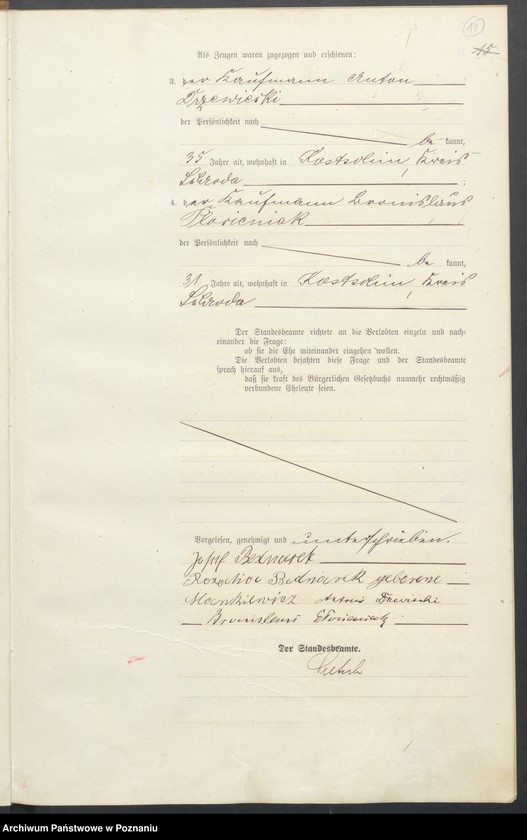 14
15
Als Zeugen waren zugezogen und erschienen:
3. der Kaufmann Anton
Drzewiecki
der Persönlichkeit nach
be kannt,
35 Jahre alt, wohnhaft in Kostschin, Kreis
Schroda ;
4. der Kaufmann Bronislaus
Florieniak
der Persönlichkeit nach
be kannt,
31 Jahre alt, wohnhaft in Kostschin, Kreis
Schroda
Der Standesbeamte richtete an die Verlobten einzeln und nach-
einander die Frage:
ob sie die Ehe miteinander eingehen wollen.
Die Verlobten bejahten diese Frage und der Standesbeamte
sprach hierauf aus,
daß sie kraft des Bürgerlichen Gesetzbuchs nunmehr rechtmäßig
verbundene Eheleute seien.
Vorgelesen, genehmigt und unterschrieben.
Josef Bednarek
Rozalia Bednarek geborene
Stankiewicz Antoni
Bronislaus
Der Standesbeamte.
Archiwum Państwowe w Poznaniu